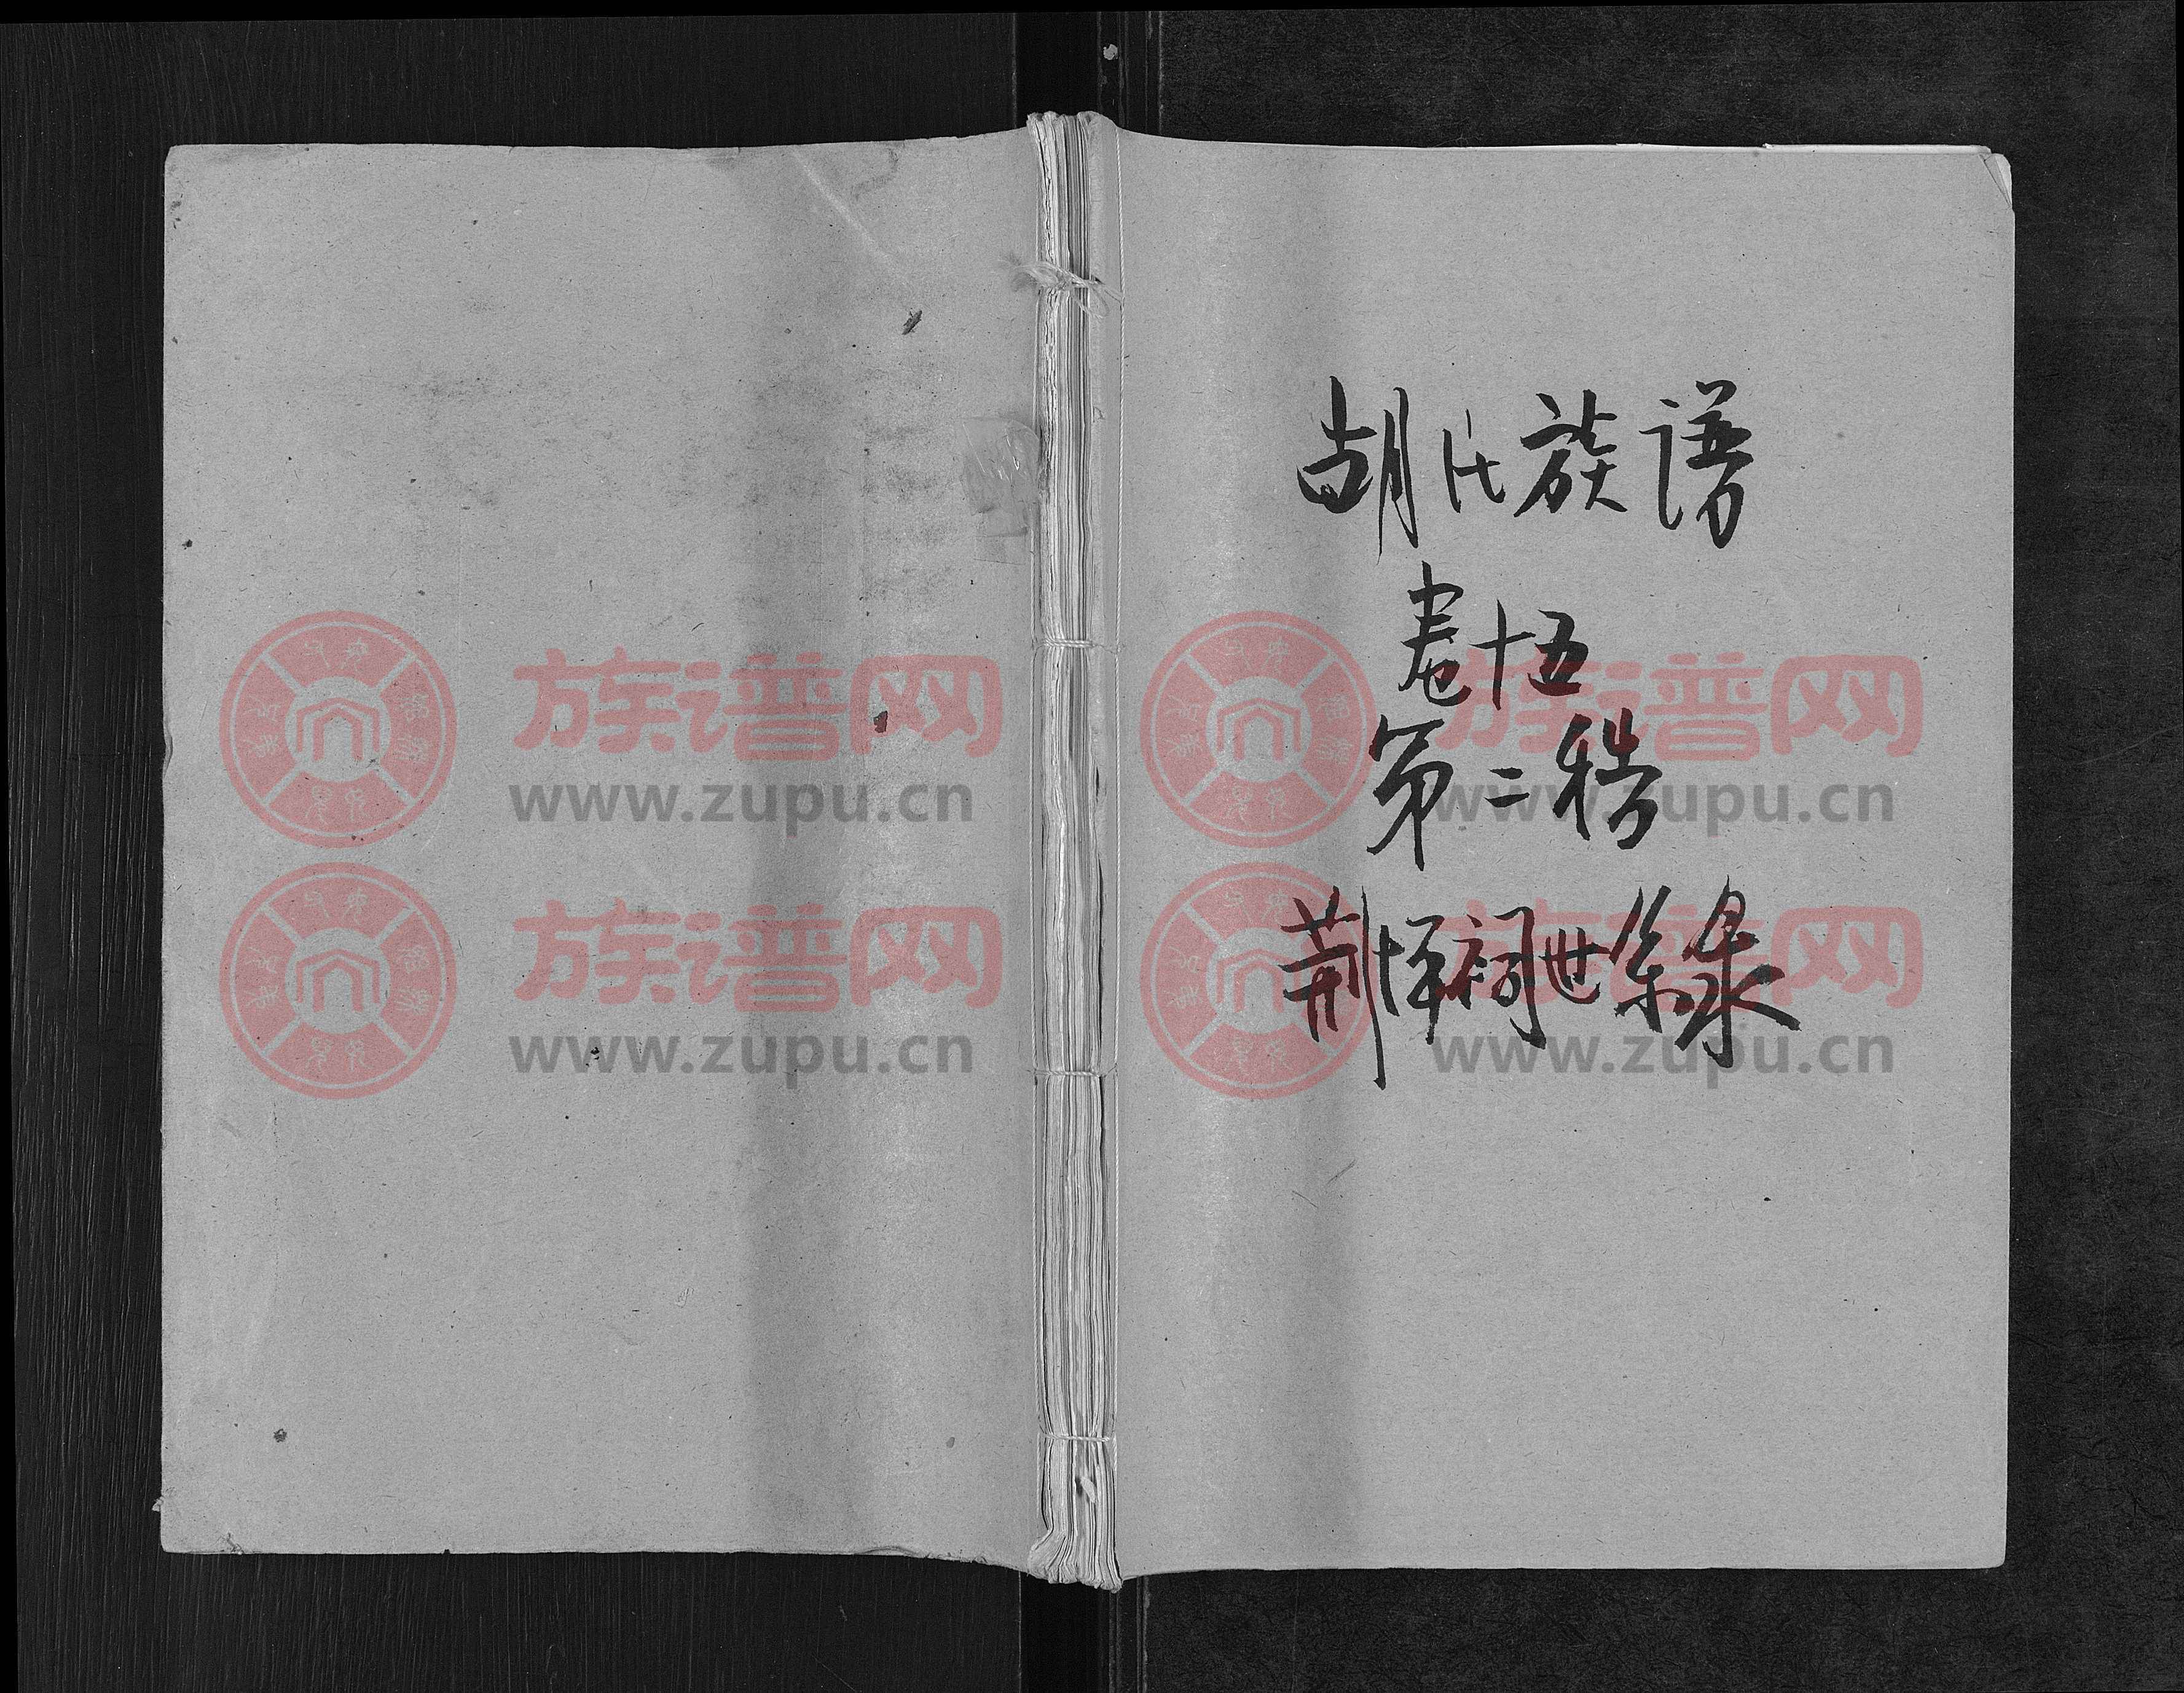 胡氏族谱
卷十五
第二稿
荆 祠世系录
族谱网
www.zupu.cn
族谱网
www.zupu.cn
族谱网
www.zupu.cn
族谱网
www.zupu.cn